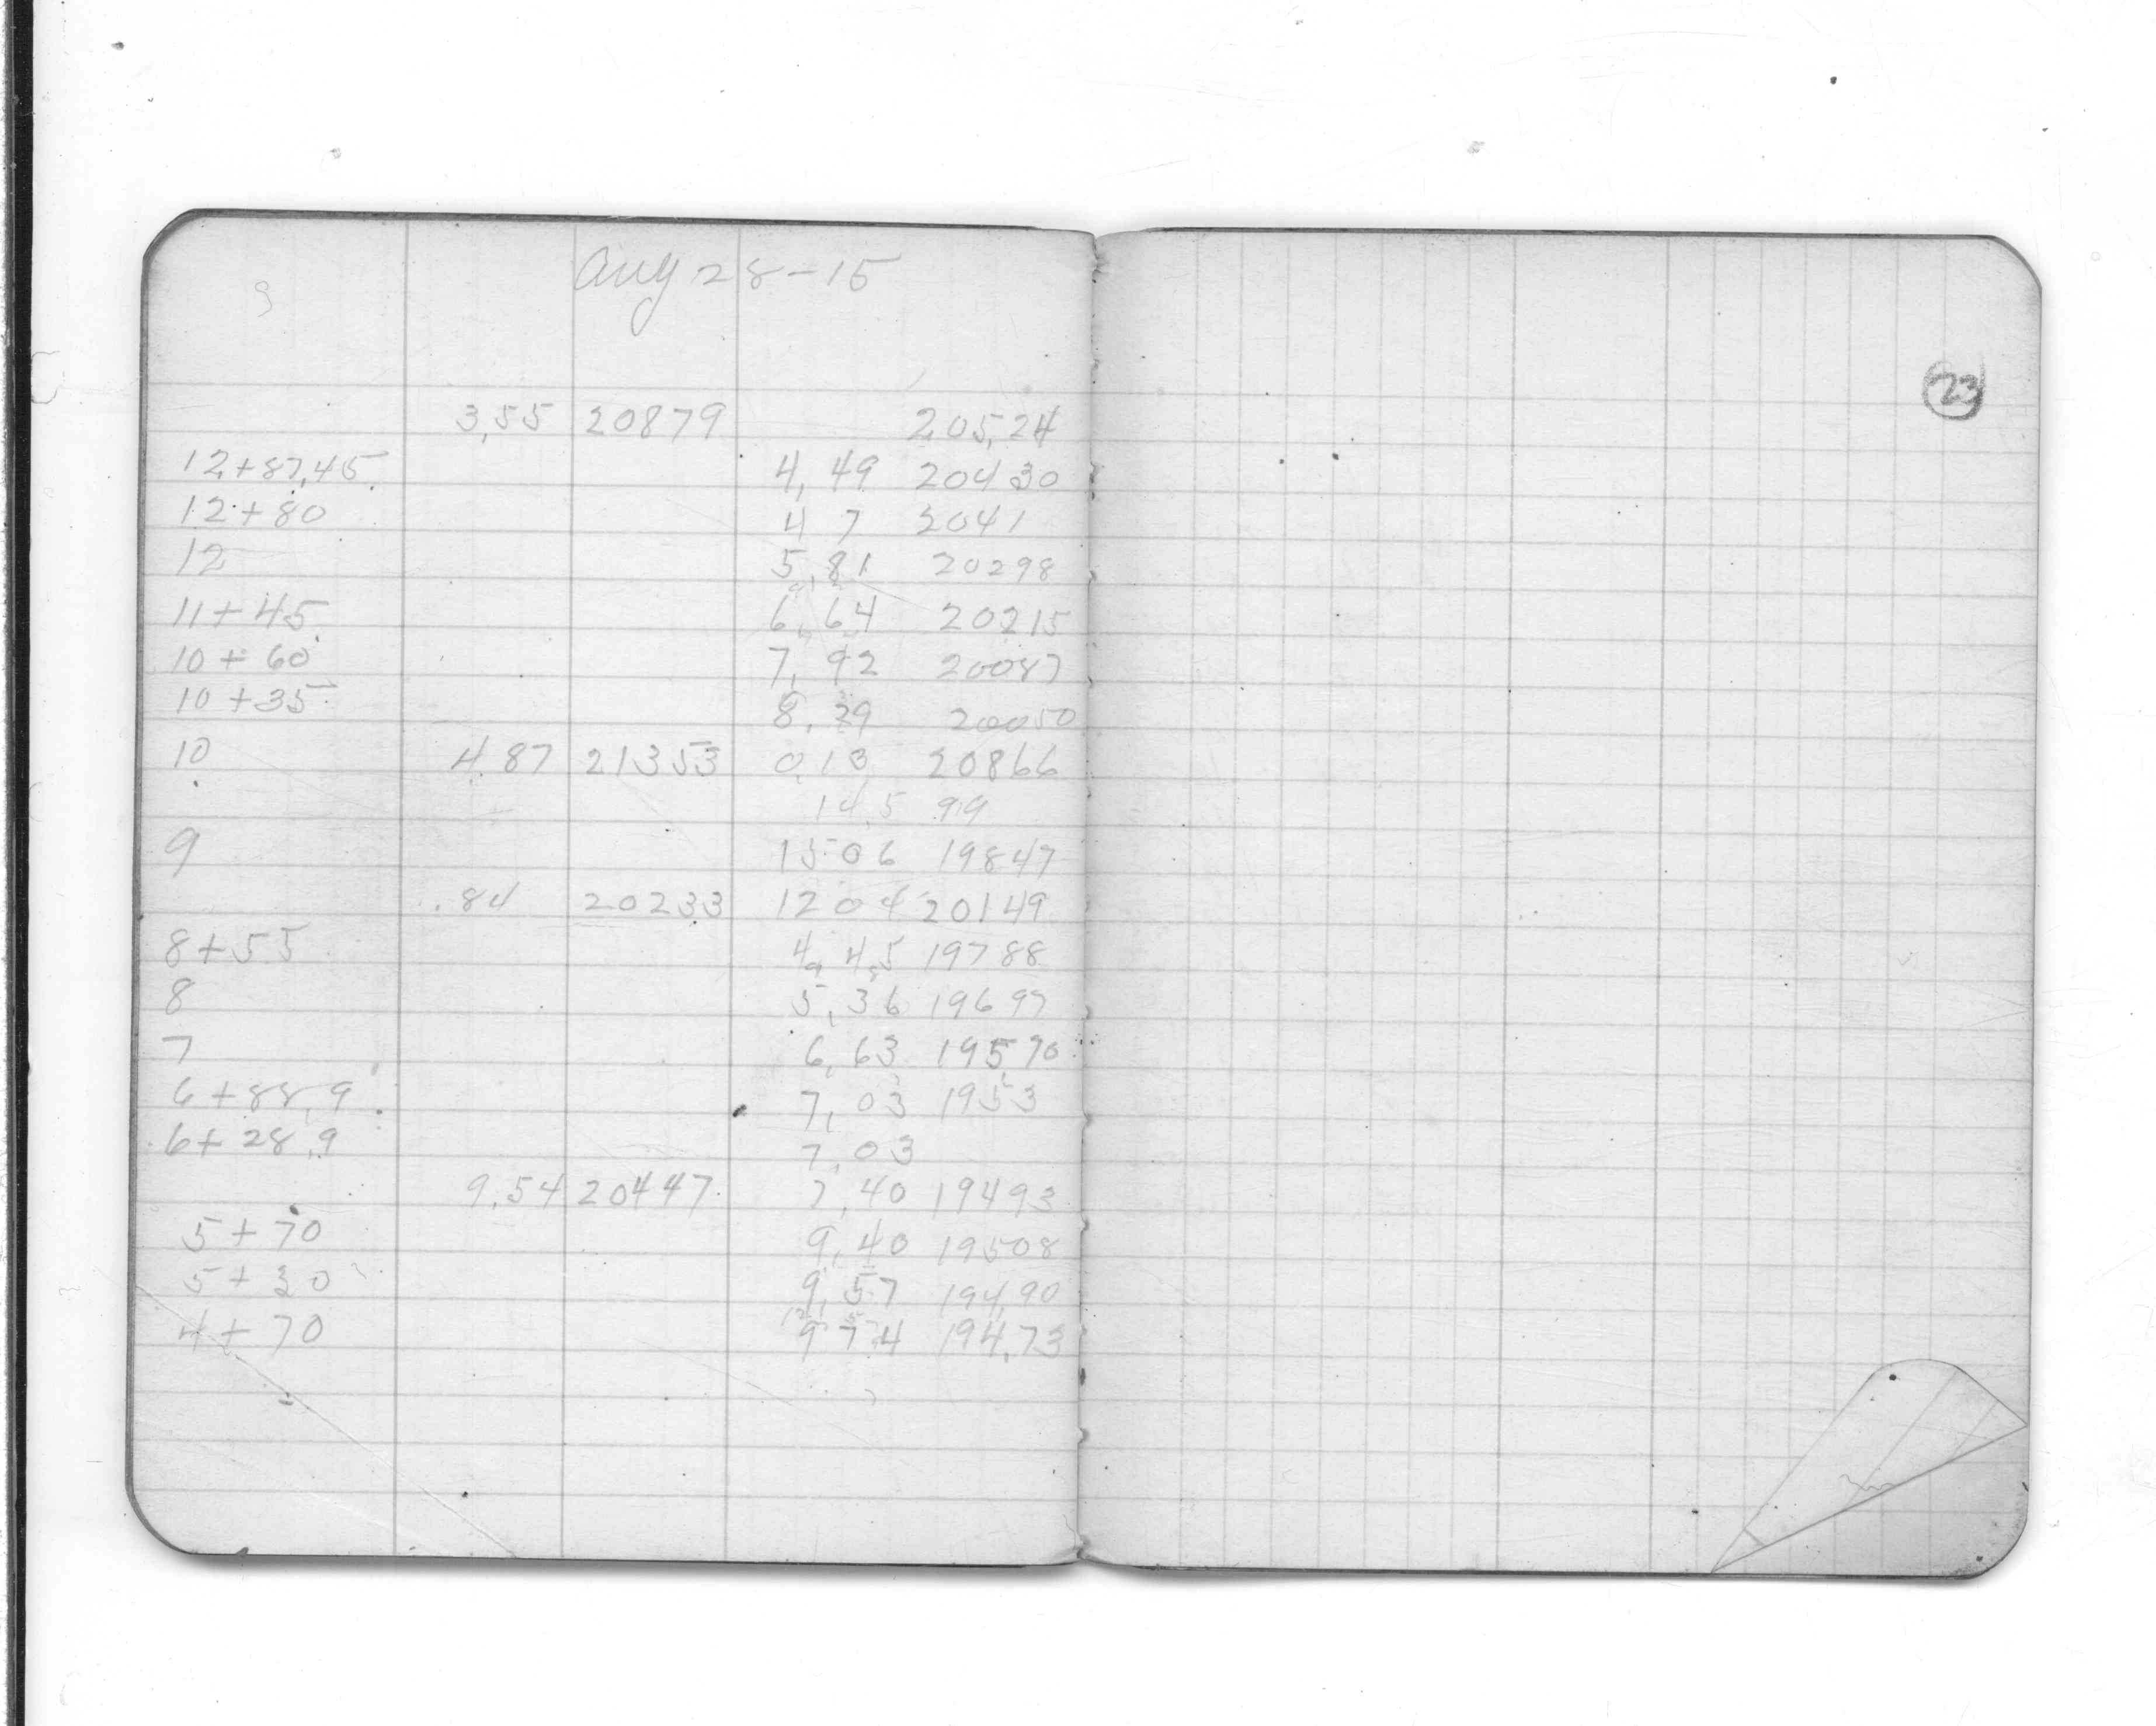 Aug 28-15
23
3,55 20879 205,24
12+87,45 4,49 20430
12+80 4 7 2041
12 5,81 20298
11+45 6,64 20215
10+60 7,92 20087
10+35 8,29 20050
10 4 87 21353 0,13 20866
14,5 99
9 15 06 19847
.84 20233 12 04 20149
8+55 4,45 19788
8 5,36 19697
7 6,63 19570
6+88,9 7,03 1953
6+28,9 7,03
9,54 20447 7,40 19493
5+70 9,40 19508
5+30 9,57 194,90
4+70 9 74 194,73